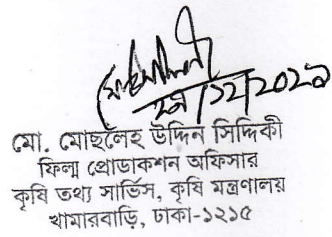 মো. মোছলেহ উদ্দিন সিদ্দিকী
ফিল্ম প্রোডাকশন অফিসার
কৃষি তথ্য সার্ভিস, কৃষি মন্ত্রণালয়
খামারবাড়ি, ঢাকা-১২১৫